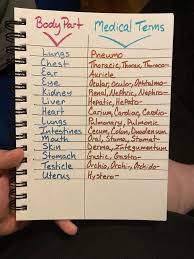 Body Part Medical Terms
Lungs Pneumo-
Chest Thoracic, Thorax, Thoraco-
Ear Auricle
Eye Ocular, Oculor, Ophthalmo-
Kidney Renal, Nephric, Nephro-
Liver Hepatic, Hepato-
Heart Carium, Cardiac, Cardio-
Lungs Pulmonary, Pulmonic
Intestines Cecum, Colon, Duodenum
Mouth Oral, Stoma, Stomat-
Skin Derma, Integumentum
Stomach Gastric, Gastro-
Testicle Orchio, Orchi-, Orchido-
Uterus Hystero-